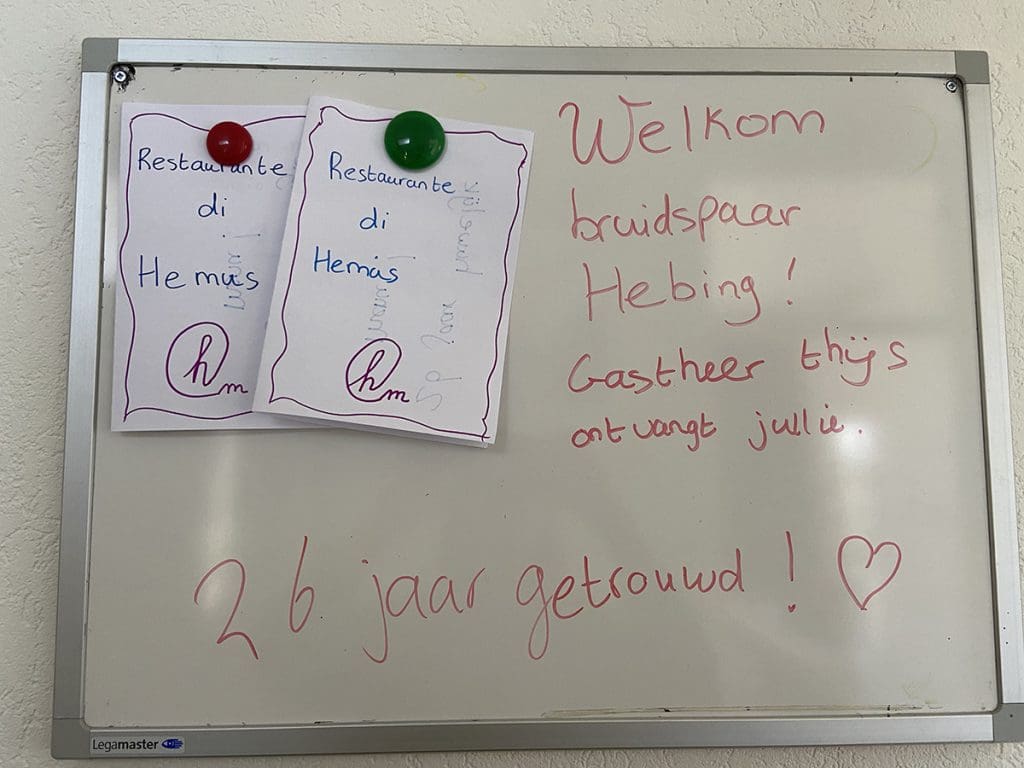 Restaurante
di
Hemus
hm
Restaurante
di
Hemás
hm
Welkom
bruidspaar
Hebing!
Gastheer thijs
ontvangt jullie.
26 jaar getrouwd! ♡
Legamaster